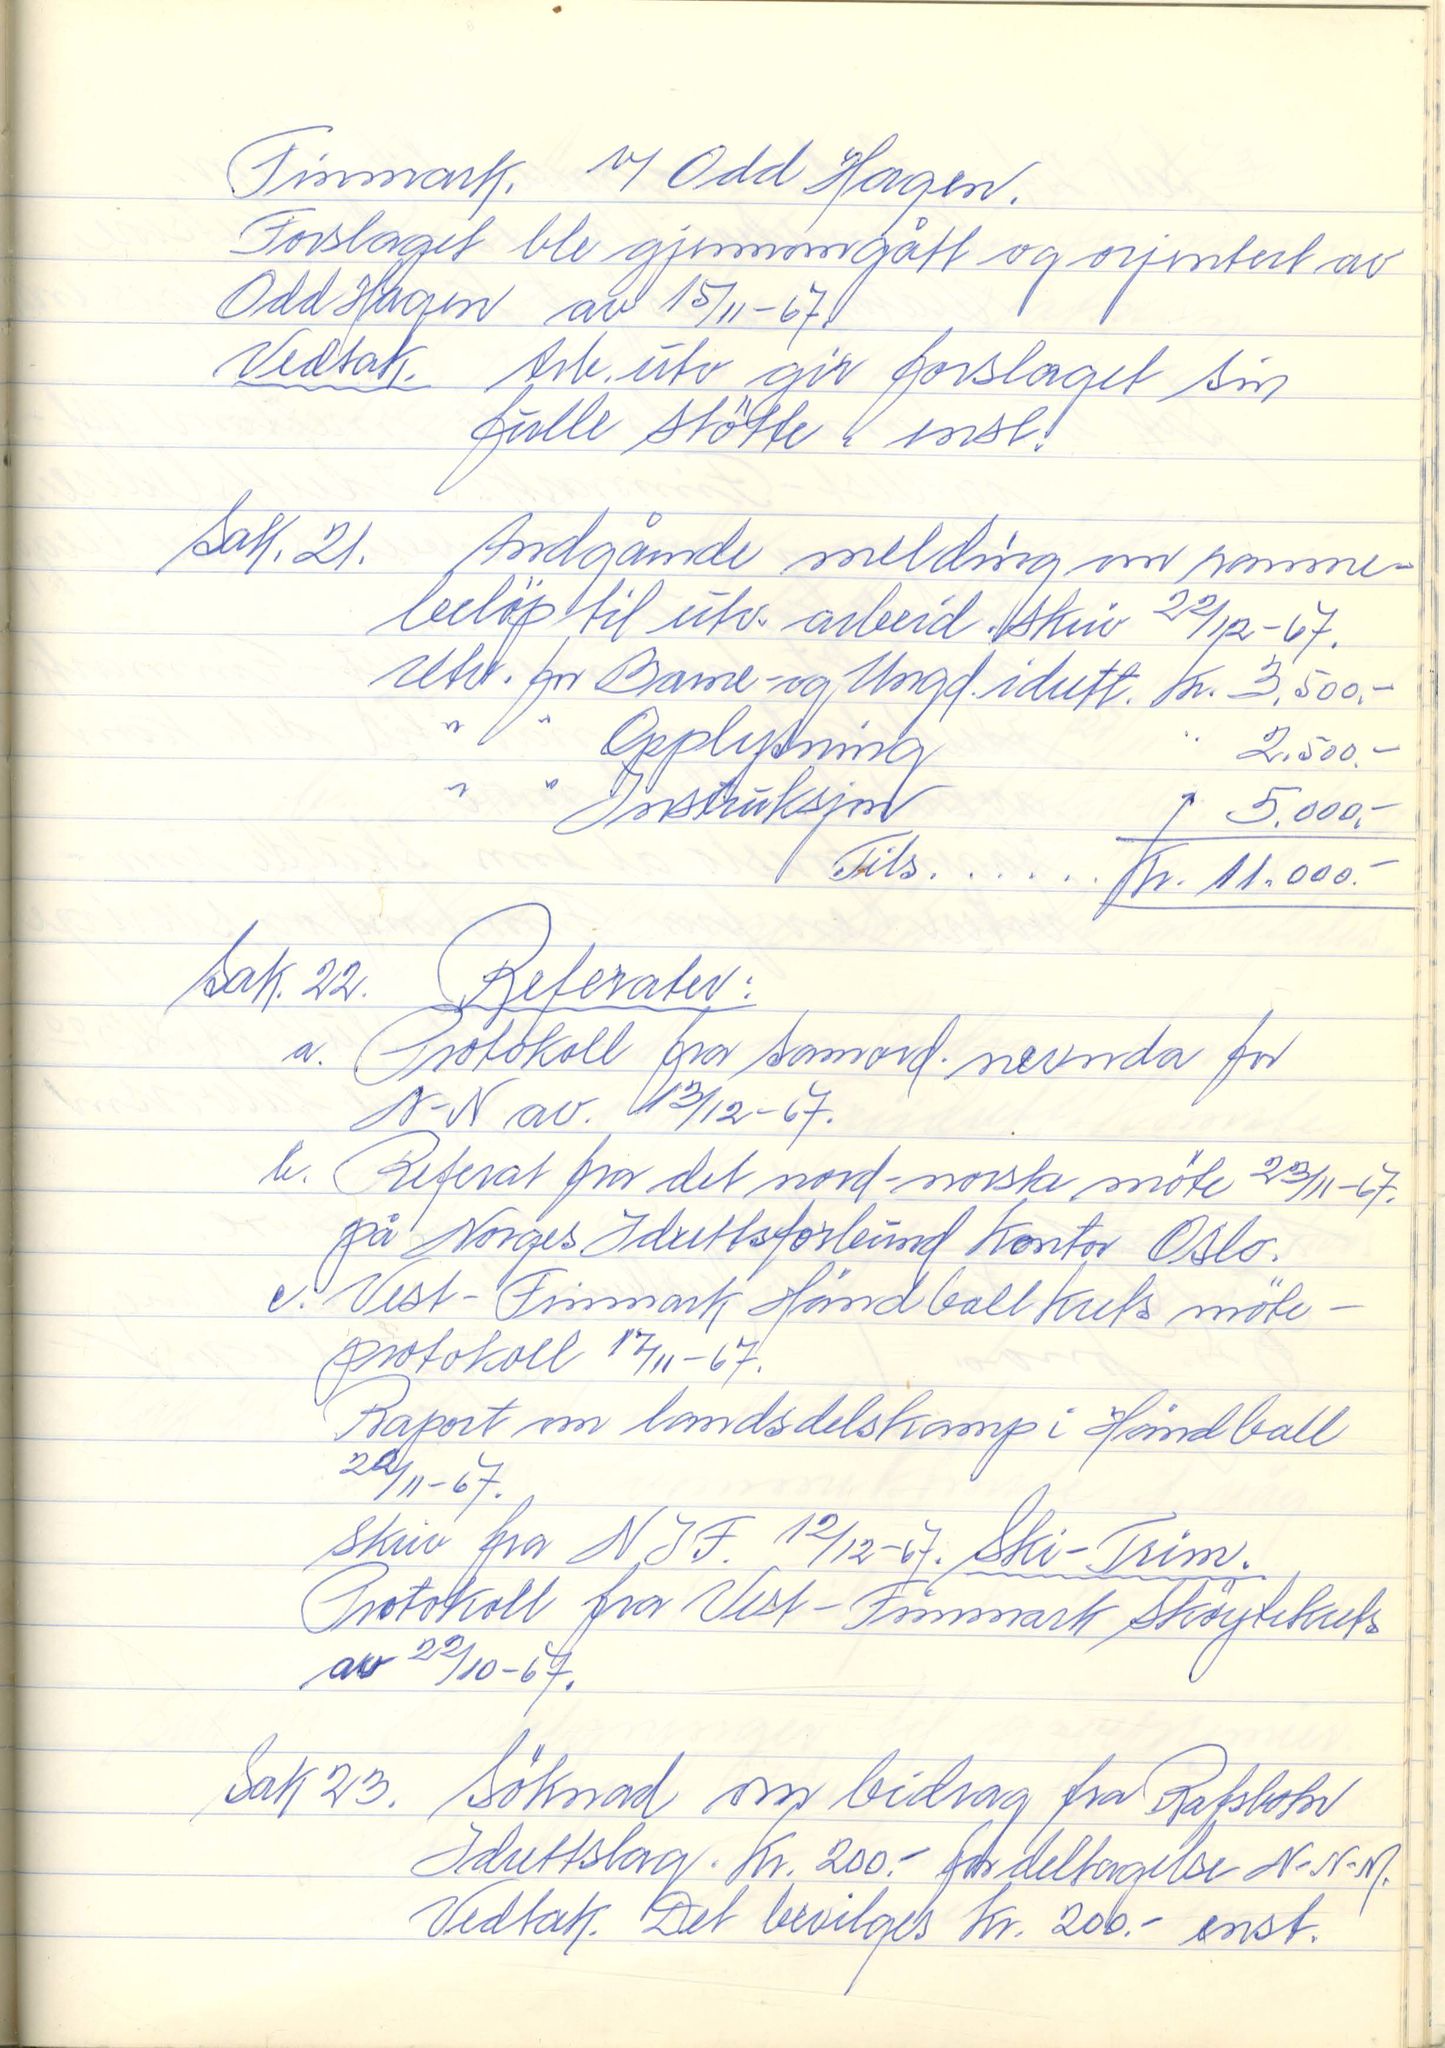 Finmark. v/ Odd Hagen.
Forslaget ble gjennomgått og orjentert av
Odd Hagen av 15/11-67.
Vedtak. Arb. utv gir forslaget sin
fulle støtte. enst.
Sak. 21. Andgående melding om ramme-
beløp til utv. arbeid. skriv 22/12-67.
Utv. for Barne- og Ungd. idrett. Kr. 3.500.-
" " Opplysning " 2.500.-
" " Instruksjon " 5.000,-
Tils. . . . . . Kr. 11.000.-
Sak. 22. Referater:
a. Protokoll fra Samord. nevnda for
N-N av. 13/12-67.
b. Referat fra det nord-norske møte 23/11-67.
på Norges Idrettsforbund Kontor Oslo.
c. Vest-Finmark Håndballkrets møte-
protokoll 17/11-67.
Raport om landsdelskamp i Håndball
22/11-67.
Skriv fra N I F. 12/12-67. Ski-Trim.
Protokoll fra Vest-Finmark Skøytekrets
av 22/10-67.
Sak 23. Søknad om bidrag fra Rafsbotn
Idrettslag. Kr. 200.- for deltagelse N-N-M.
Vedtak. Det bevilges Kr. 200.- enst.